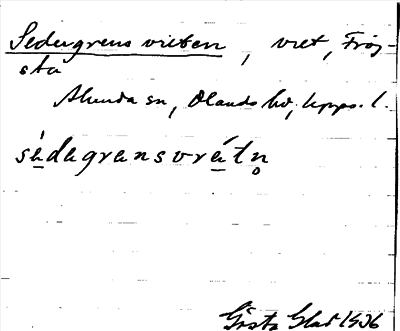 Sedugrens vreten, vret, Frös-
sta
Alunda sn, Olands hd, Upps. l.
sèdugransvrétn̥
Gösta Glad 1936